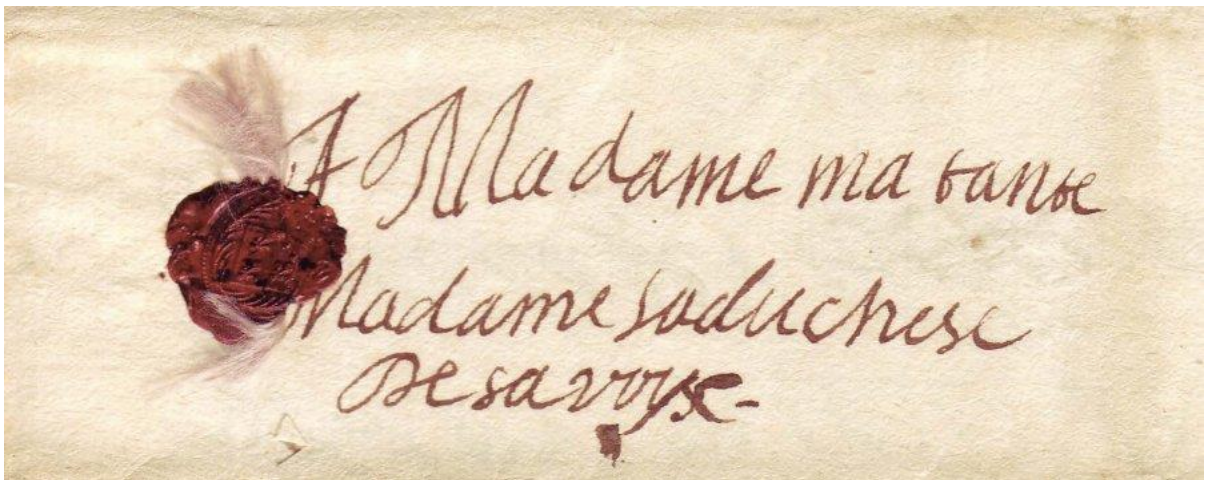 A Madame ma tante
Madame laduchese
De savoye-